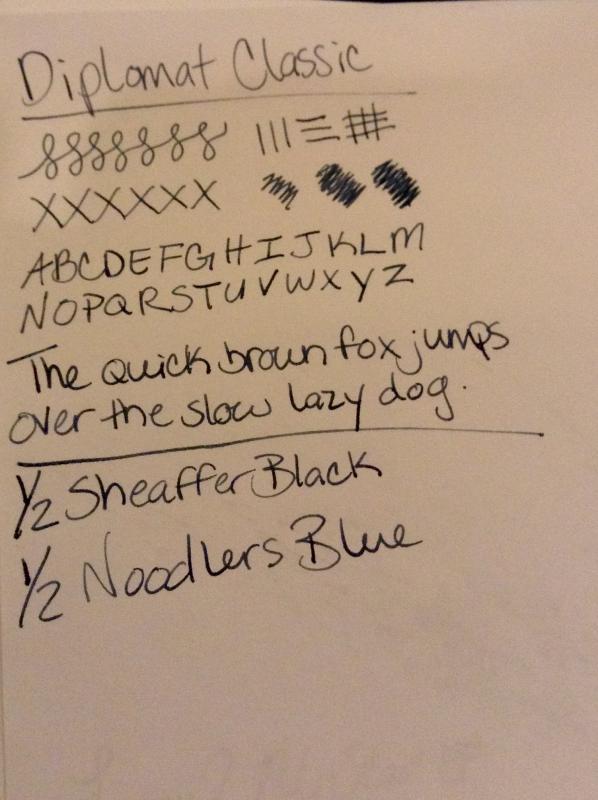 Diplomat Classic
XXXXXX
ABCDEFGHIJKLM
NOPQRSTUVWXYZ
The quick brown fox jumps
over the slow lazy dog.
1/2 Sheaffer Black
1/2 Noodlers Blue